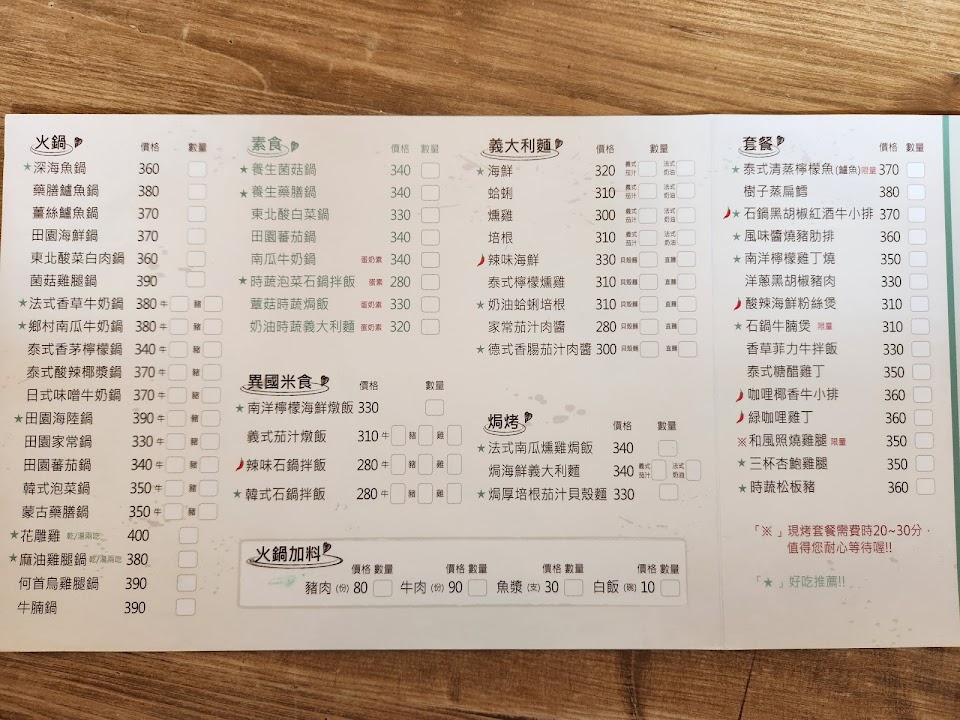 火鍋 價格 數量
★深海魚鍋 360
藥膳鱸魚鍋 380
薑絲鱸魚鍋 370
田園海鮮鍋 370
東北酸菜白肉鍋 360
菌菇雞腿鍋 390
★法式香草牛奶鍋 380 牛 豬
★鄉村南瓜牛奶鍋 380 牛 豬
泰式香茅檸檬鍋 340 牛 豬
泰式酸辣椰漿鍋 370 牛 豬
日式味噌牛奶鍋 370 牛 豬
★田園海陸鍋 390 牛 豬
田園家常鍋 330 牛 豬
田園蕃茄鍋 340 牛 豬
韓式泡菜鍋 350 牛 豬
蒙古藥膳鍋 350 牛 豬
★花雕雞 乾/湯兩吃 400
★麻油雞腿鍋 乾/湯兩吃 380
何首烏雞腿鍋 390
牛腩鍋 390
素食 價格 數量
★養生菌菇鍋 340
★養生藥膳鍋 340
東北酸白菜鍋 330
田園蕃茄鍋 340
南瓜牛奶鍋 蛋奶素 340
★時蔬泡菜石鍋拌飯 蛋素 280
蕈菇時蔬焗飯 蛋奶素 330
奶油時蔬義大利麵 蛋奶素 320
異國米食 價格 數量
★南洋檸檬海鮮燉飯 330
義式茄汁燉飯 310 牛 豬 雞
辣味石鍋拌飯 280 牛 豬 雞
★韓式石鍋拌飯 280 牛 豬 雞
義大利麵 價格 數量
★海鮮 320 義式茄汁 法式奶油
蛤蜊 310 義式茄汁 法式奶油
燻雞 300 義式茄汁 法式奶油
培根 310 義式茄汁 法式奶油
辣味海鮮 330 貝殼麵 直麵
泰式檸檬燻雞 310 貝殼麵 直麵
★奶油蛤蜊培根 310 貝殼麵 直麵
家常茄汁肉醬 280 貝殼麵 直麵
★德式香腸茄汁肉醬 300 貝殼麵 直麵
焗烤 價格 數量
★法式南瓜燻雞焗飯 340
焗海鮮義大利麵 340 義式茄汁 法式奶油
★焗厚培根茄汁貝殼麵 330
火鍋加料
價格 數量 價格 數量 價格 數量 價格 數量
豬肉 (份) 80 牛肉 (份) 90 魚漿 (支) 30 白飯 (碗) 10
套餐 價格 數量
★泰式清蒸檸檬魚(鱸魚)限量 370
樹子蒸扁鱈 380
★石鍋黑胡椒紅酒牛小排 370
★風味醬燒豬肋排 360
★南洋檸檬雞丁燒 350
洋蔥黑胡椒豬肉 330
酸辣海鮮粉絲煲 310
★石鍋牛腩煲 限量 310
香草菲力牛拌飯 330
泰式糖醋雞丁 350
咖哩椰香牛小排 360
綠咖哩雞丁 360
※和風照燒雞腿 限量 350
★三杯杏鮑雞腿 350
★時蔬松板豬 360
「※」現烤套餐需費時20~30分，
值得您耐心等待喔!!
「★」好吃推薦!!